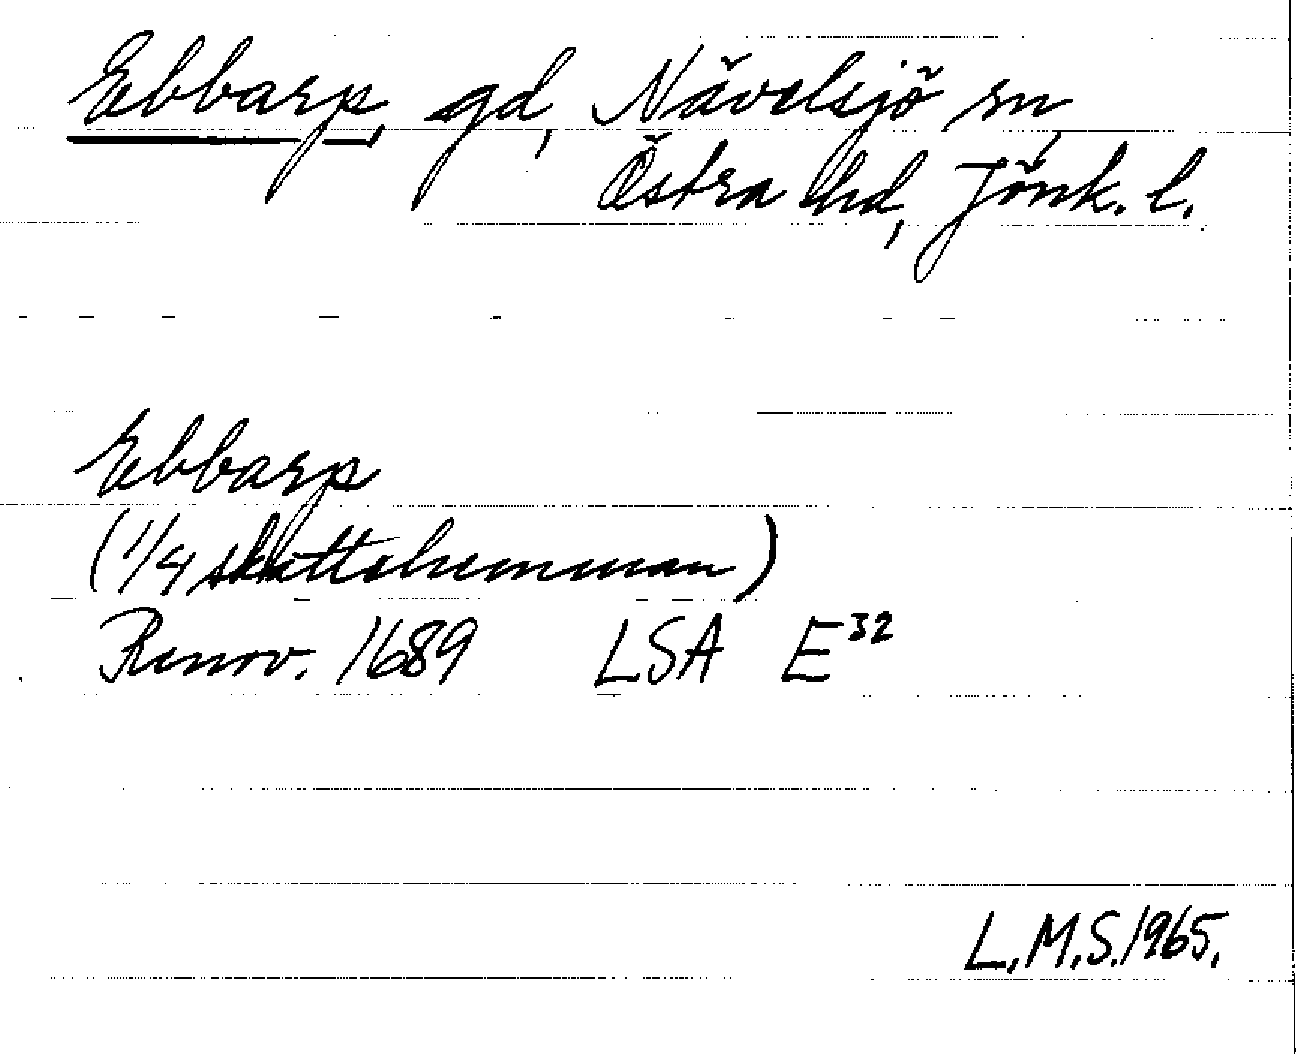 Ebbarp, gd, Nävelsjö sn,
Östra hd, Jönk. l.
Ebbarp
(1/4 skattehemman)
Renov. 1689 LSA E³²
L.M.S. 1965.